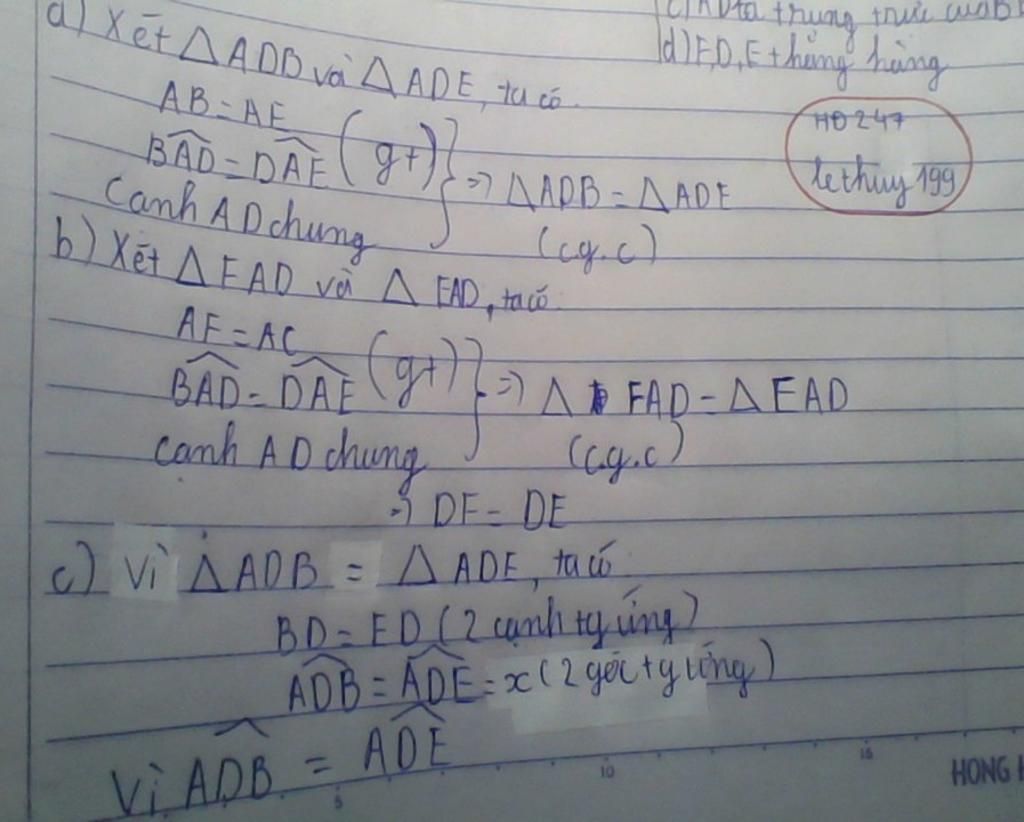 c) AD là trung trực của B
d) F, D, E thẳng hàng
HD 247
lethuy 199
a) Xét △ADB và △ADE, ta có
AB = AE
BAD = DAE (gt)
Cạnh AD chung
} => △ADB = △ADE
(c.g.c)
b) Xét △FAD và △EAD, ta có
AF = AC
BAD = DAE (gt)
cạnh AD chung
} => △ FAD = △EAD
(c.g.c)
=> DF = DE
c) Vì △ADB = △ADE, ta có
BD = ED (2 cạnh tg ứng)
ADB = ADE = x (2 góc tg ứng)
Vì ADB = ADE
5 10 15
HONG